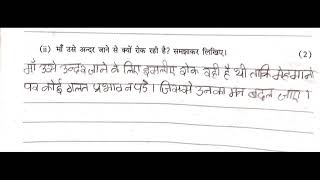 (ii) माँ उसे अन्दर जाने से क्यों रोक रही है? समझाकर लिखिए। (2)
माँ उसे अन्दर जाने के लिए इसलीए रोक रही है थी ताकि मेहमानो
पर कोई गलत प्रभाव न पडे। जिससे उनका मन बदल जाए।